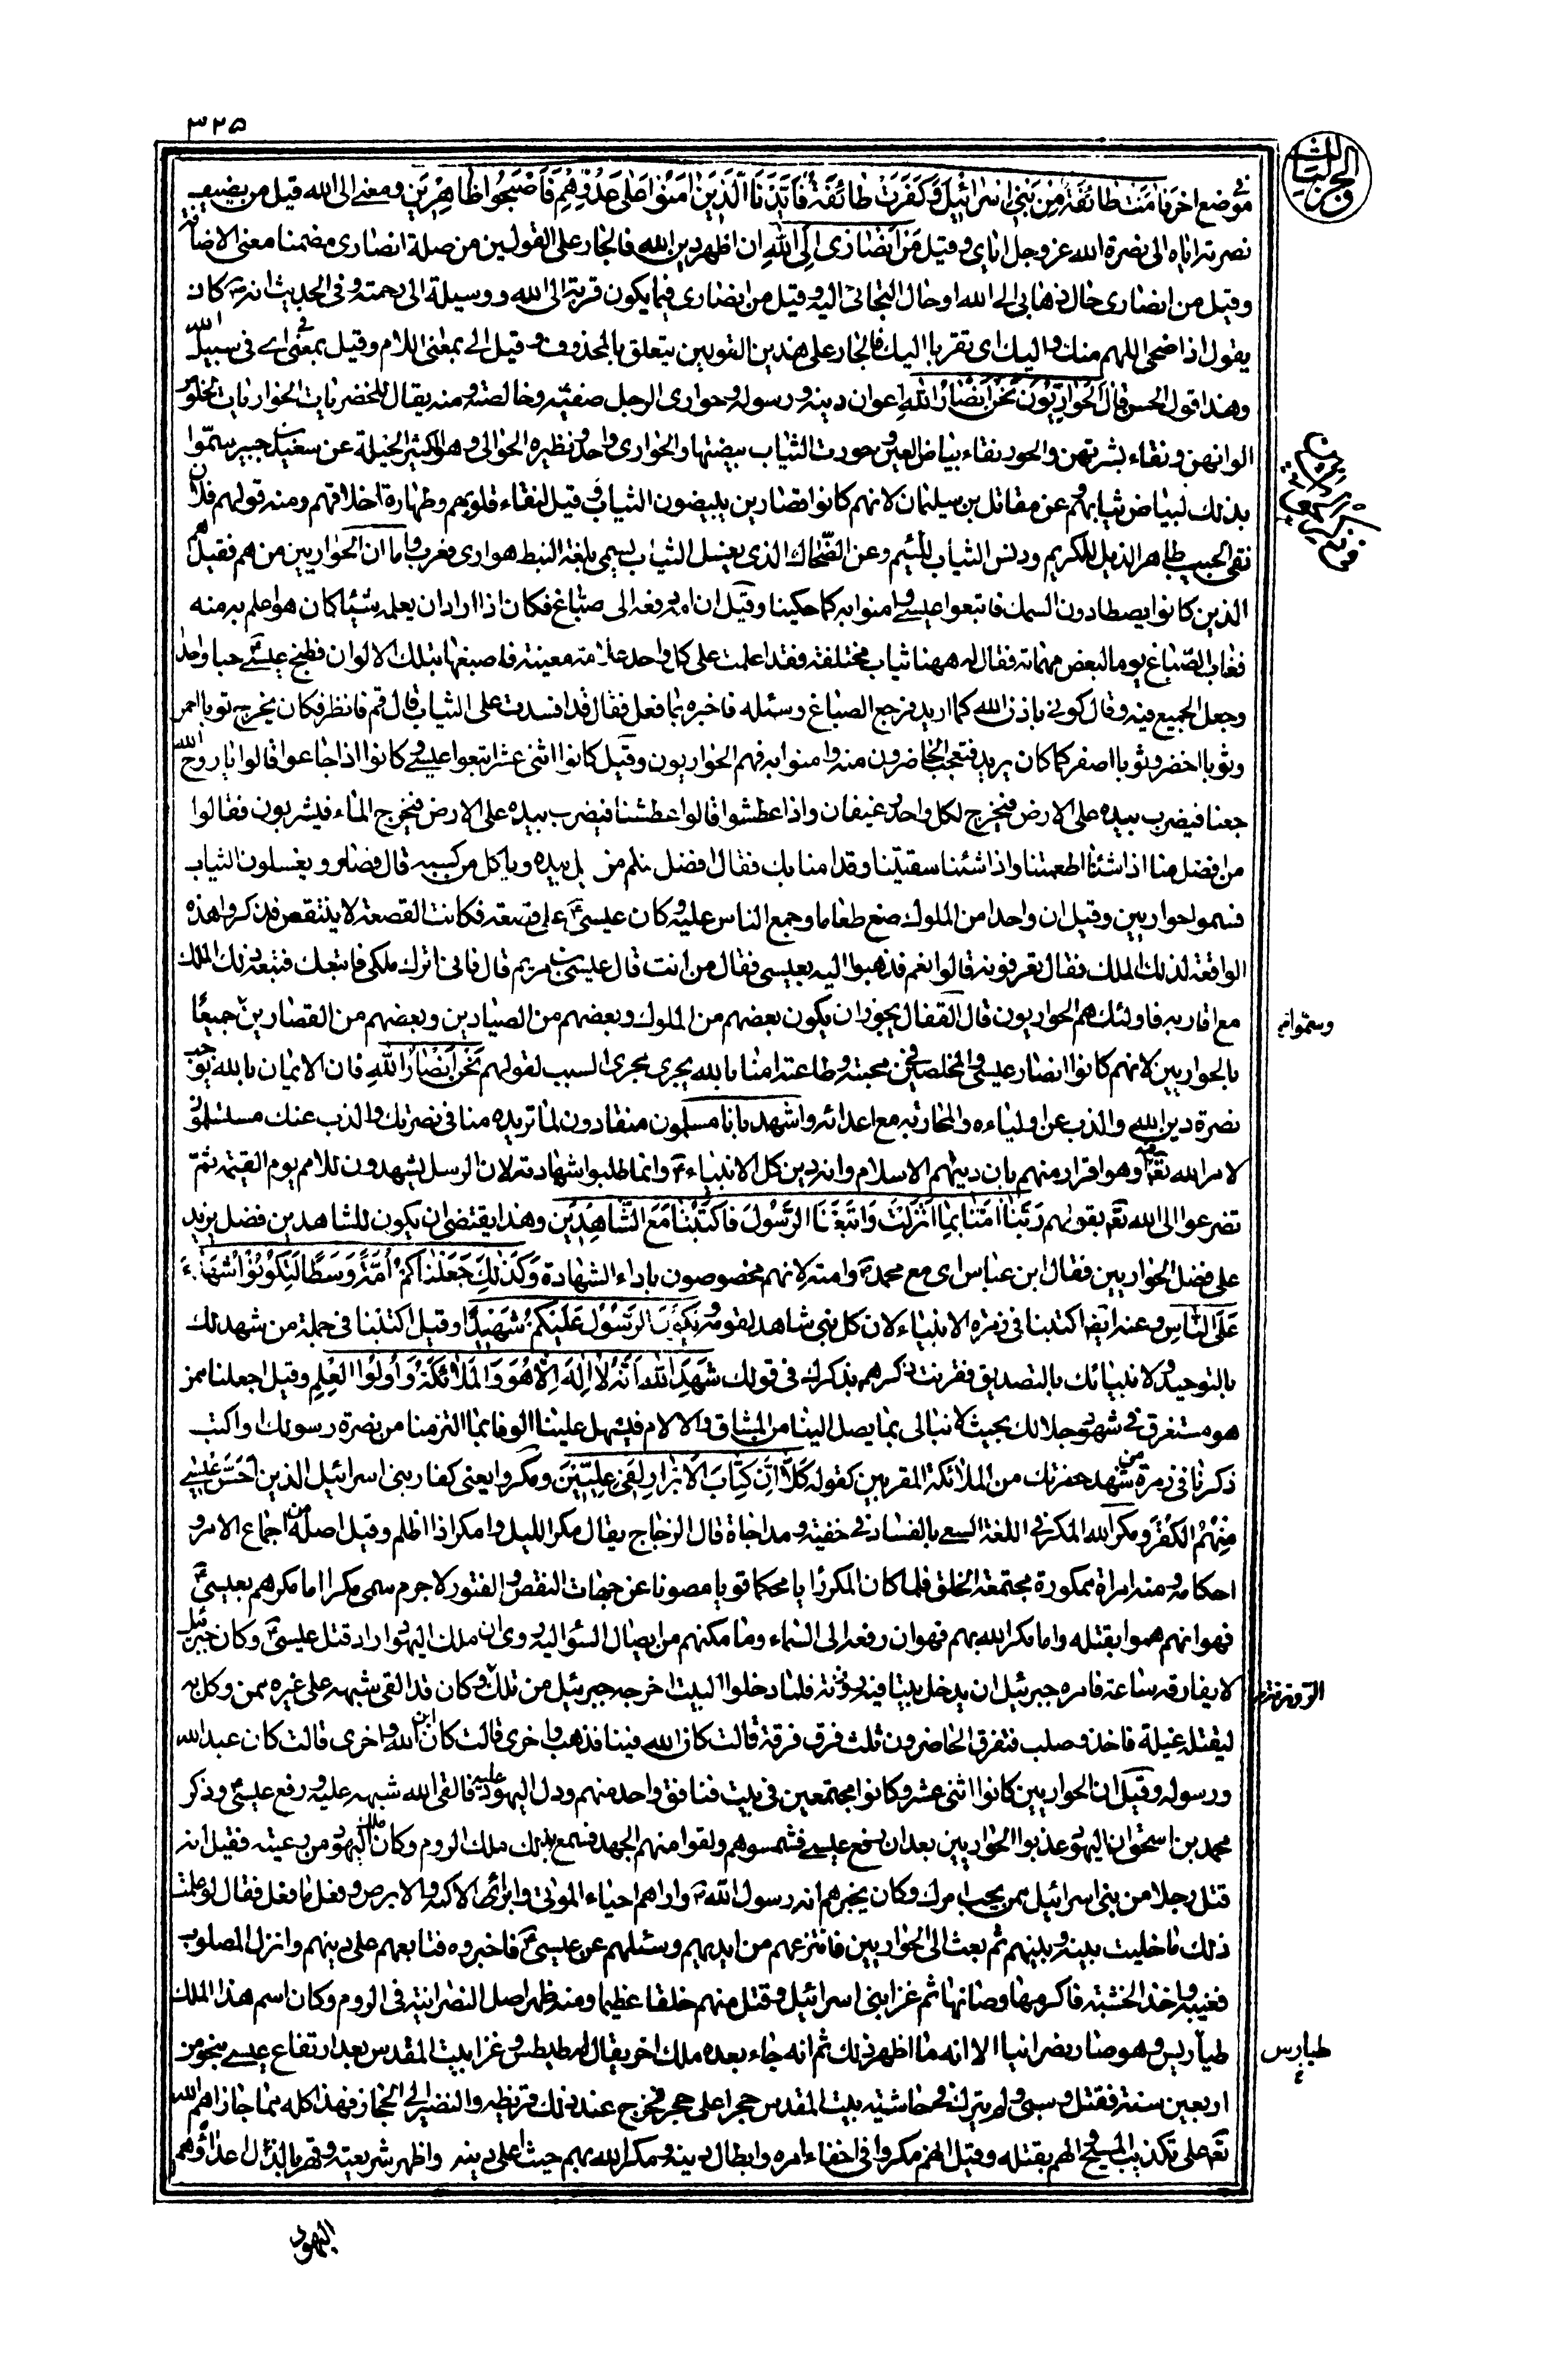 ٣٢٥
الجزء الثالث
فى موضع اخر فامنت طائفة من بنى اسرائيل وكفرت طائفة فايدنا الذين امنوا على عدوهم فاصبحوا ظاهرين ومعنى الى الله قيل من يضيف
نصرته اياه الى نصرة الله عز وجل اياى وقيل من انصارى الى الله ان اظهر دين الله فالجار على القولين من صلة انصارى مضمنا معنى الاضافة
وقيل من انصارى حال ذهابى الى الله او حال التجائى اليه وقيل من انصارى فيما يكون قربة الى الله ووسيلة الى رحمته وفى الحديث انه ص كان
يقول اذا ضحى اللهم منك واليك اى تقربا اليك فالجار على هذين القولين يتعلق بالمحذوف وقيل الى بمعنى اللام وقيل بمعنى فى اى فى سبيل الله
وهذا قول الحسن قال الحواريون نحن انصار الله اعوان دينه ورسوله وحوارى الرجل صفيه وخالصته ومنه يقال للحضريات الحواريات لخلوص
الوانهن ونقاء بشرتهن والحور نقاء بياض العين وحورت الثياب بيضتها والحوارى واحد ونظيره الحوالى وهو الكثير الحيلة عن سعيد بن جبير سموا
بذلك لبياض ثيابهم وعن مقاتل بن سليمان لانهم كانوا قصارين يبيضون الثياب وقيل لنقاء قلوبهم وطهارة اخلاقهم ومنه قولهم فلان
نقى الجيب طاهر الذيل للكريم ودنس الثياب للئيم وعن الضحاك الذى يغسل الثياب يسمى بلغة النبط هوارى فعرب واما ان الحواريين من هم فقيل هم
الذين كانوا يصطادون السمك فاتبعوا عيسى وامنوا به كما حكينا وقيل ان امه دفعه الى صباغ فكان اذا اراد ان يعلمه شيئا كان هو اعلم به منه
فغاب الصباغ يوما لبعض مهماته فقال له ههنا ثياب مختلفة فقد اعلمت على كل واحد علامة معينة فاصبغها بتلك الالوان فطبخ عيسى ع حبا واحدا
وجعل الجميع فيه وقال كونى باذن الله كما اريد فرجع الصباغ وسئله فاخبره بما فعل فقال قد افسدت على الثياب قال قم فانظر فكان يخرج ثوبا احمر
وثوبا اخضر وثوبا اصفر كما كان يريد فتعجب الحاضرون منه وامنوا به فهم الحواريون وقيل كانوا اثنى عشر اتبعوا عيسى وكانوا اذا جاعوا قالوا يا روح الله
جعنا فيضرب بيده على الارض فيخرج لكل واحد رغيفان واذا عطشوا قالوا عطشنا فيضرب بيده على الارض فيخرج الماء فيشربون فقالوا
من افضل منا اذا شئنا اطعمتنا واذا شئنا سقيتنا وقد امنا بك فقال افضل منكم من بيده وياكل من كسبه قال فصاروا يغسلون الثياب
فسموا حواريين وقيل ان واحدا من الملوك صنع طعاما وجمع الناس عليه وكان عيسى ع على قصعة فكانت القصعة لا ينتقص فذكروا هذه
الواقعة لذلك الملك فقال تعرفونه قالوا نعم فذهبوا اليه بعيسى فقال من انت قال عيسى بن مريم قال فانى اترك ملكى فاتبعك فتبعه ذلك الملك
مع اقاربه فاولئك هم الحواريون قال القفال يجوز ان يكون بعضهم من الملوك وبعضهم من الصيادين وبعضهم من القصارين جميعا
وسموا
بالحواريين لانهم كانوا انصار عيسى والمخلصين فى محبته وطاعته امنا بالله يجرى مجرى السبب لقولهم نحن انصار الله فان الايمان بالله يوجب
نصرة دين الله والذب عن اولياءه والمحاربة مع اعدائه واشهد بانا مسلمون منقادون لما تريده منا فى نصرتك والذب عنك مستسلمون
لامر الله تعالى فيه وهو اقرار منهم بان دينهم الاسلام وانه دين كل الانبياء ع وانما طلبوا شهادته لان الرسل يشهدون للامم يوم القيمة ثم
تضرعوا الى الله تعم بقولهم ربنا امنا بما انزلت واتبعنا الرسول فاكتبنا مع الشاهدين وهذا يقتضى ان يكون للشاهدين فضل يزيد
على فضل الحواريين فقال ابن عباس اى مع محمد ص وامته لانهم مخصوصون باداء الشهادة وكذلك جعلناكم امة وسطا لتكونوا شهداء
على الناس وعنه ايضا اكتبنا فى زمرة الانبياء لان كل نبى شاهد لقومه ويكون الرسول عليكم شهيدا وقيل اكتبنا فى جملة من شهد لك
بالتوحيد ولانبيائك بالتصديق فقرنت ذكرهم بذكرك فى قولك شهد الله انه لا اله الا هو والملائكة واولوا العلم وقيل اجعلنا ممن
هو مستغرق فى شهود جلالك بحيث لا نبالى بما يصل الينا من المشاق والالام فيسهل علينا الوفا بما التزمنا من نصرة رسولك او اكتب
ذكرنا فى زمرة من شهد حضرتك من الملائكة المقربين كقوله كلا ان كتاب الابرار لفى عليين ومكروا يعنى كفار بنى اسرائيل الذين احس عيسى
منهم الكفر ومكر الله المكر فى اللغة السعى بالفساد فى خفية ومداجاة قال الزجاج يقال مكر الليل وامكر اذا اظلم وقيل اصله من اجماع الامر و
احكامه ومنه امراة ممكورة مجتمعة الخلق فلما كان المكر رايا محكما قويا مصونا عن جهات النقص والفتور لا جرم سمى مكرا اما مكرهم بعيسى ع
فهو انهم هموا بقتله واما مكر الله بهم فهو ان رفعه الى السماء وما مكنهم من ايصال السؤ اليه روى ان ملك اليهود اراد قتل عيسى ع وكان جبرئيل
لا يفارقه ساعة فامره جبرئيل ان يدخل بيتا فيه روزنة فلما دخلوا البيت اخرجه جبرئيل من تلك وكان قد القى شبهه على غيره ممن وكل به
الروزنة
ليقتله غيلة فاخذ وصلب فتفرق الحاضرون ثلث فرق فرقة قالت كان الله فينا فذهب واخرى قالت كان ابن الله واخرى قالت كان عبد الله
ورسوله وقيل ان الحواريين كانوا اثنى عشر وكانوا مجتمعين فى بيت فنافق واحد منهم ودل اليهود عليه فالقى الله شبهه عليه ورفع عيسى ع وذكر
محمد بن اسحق ان اليهود عذبوا الحواريين بعد ان رفع عيسى فشمسوهم ولقوا منهم الجهد فسمع بذلك ملك الروم وكان ملك اليهود من رعيته فقيل انه
قتل رجلا من بنى اسرائيل ممن يحب امرك وكان يخبرهم انه رسول الله ص واراهم احياء الموتى وابرائ الاكمه والابرص وفعل ما فعل فقال لو علمت
ذلك ما خليت بينه وبينهم ثم بعث الى الحواريين فانتزعهم من ايديهم وسئلهم عن عيسى ع فاخبروه فتابعهم على دينهم وانزل المصلوب
فغيبه واخذ الخشبة فاكرمها وصانها ثم غزا بنى اسرائيل وقتل منهم خلقا عظيما ومنه ظهر اصل النصرانية فى الروم وكان اسم هذا الملك
طباريس وهو صار نصرانيا الا انه ما اظهر ذلك ثم انه جاء بعده ملك اخر يقال له مطيطس وغزا بيت المقدس بعد ارتفاع عيسى بنحو من
طبارس
اربعين سنة فقتل وسبى ولم يترك فى حاشية بيت المقدس حجرا على حجر فخرج عند ذلك قريظة والنضير الى الحجاز فهذا كله مما جازاهم الله
تعم على تكذيب المسيح والهم بقتله وقيل انهم مكروا فى اخفاء امره وابطال دينه ومكر الله بهم حيث اعلى دينه واظهر شريعته وقهر بالذل اعداؤه وهم
اليهود